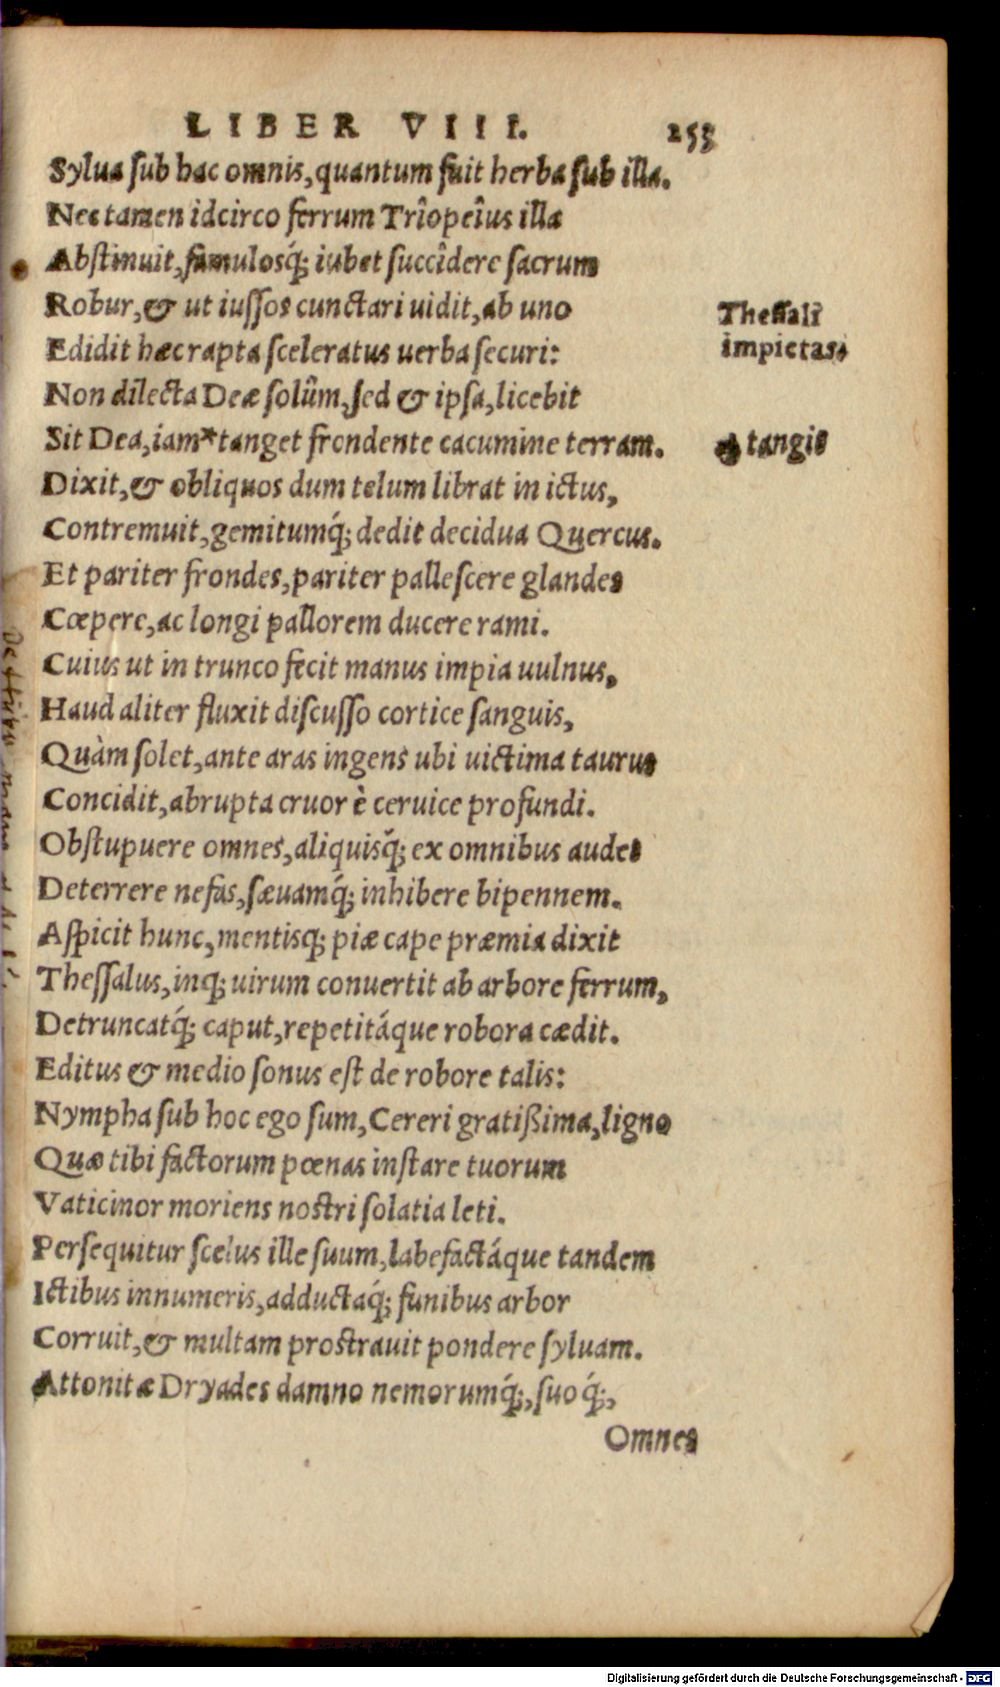 LIBER VIII. 253
Sylua sub hac omnis, quantum fuit herba sub illa.
Nec tamen idcirco ferrum Triopeîus illa
Abstinuit, famulosq́; iubet succîdere sacrum
Robur, & ut iussos cunctari uidit, ab uno
Edidit hæc rapta sceleratus uerba securi:
Non dilecta Deæ solùm, sed & ipsa, licebit
Sit Dea, iam*tanget frondente cacumine terram.
Dixit, & obliquos dum telum librat in ictus,
Contremuit, gemitumq́; dedit decidua Quercus.
Et pariter frondes, pariter pallescere glandes
Cœpere, ac longi pallorem ducere rami.
Cuius ut in trunco fecit manus impia uulnus,
Haud aliter fluxit discusso cortice sanguis,
Quàm solet, ante aras ingens ubi uictima taurus
Concidit, abrupta cruor è ceruice profundi.
Obstupuere omnes, aliquisq́; ex omnibus audet
Deterrere nefas, sæuamq́; inhibere bipennem.
Aspicit hunc, mentisq; piæ cape præmia dixit
Thessalus, inq; uirum conuertit ab arbore ferrum,
Detruncatq́; caput, repetitáque robora cædit.
Editus & medio sonus est de robore talis:
Nympha sub hoc ego sum, Cereri gratißima, ligno
Quæ tibi factorum pœnas instare tuorum
Vaticinor moriens nostri solatia leti.
Persequitur scelus ille suum, labefactáque tandem
Ictibus innumeris, adductaq́; funibus arbor
Corruit, & multam prostrauit pondere syluam.
Attonitæ Dryades damno nemorumq́;, suoq́;,
Omnes
Thessali
impietas.
tangit
Digitalisierung gefördert durch die Deutsche Forschungsgemeinschaft - DFG